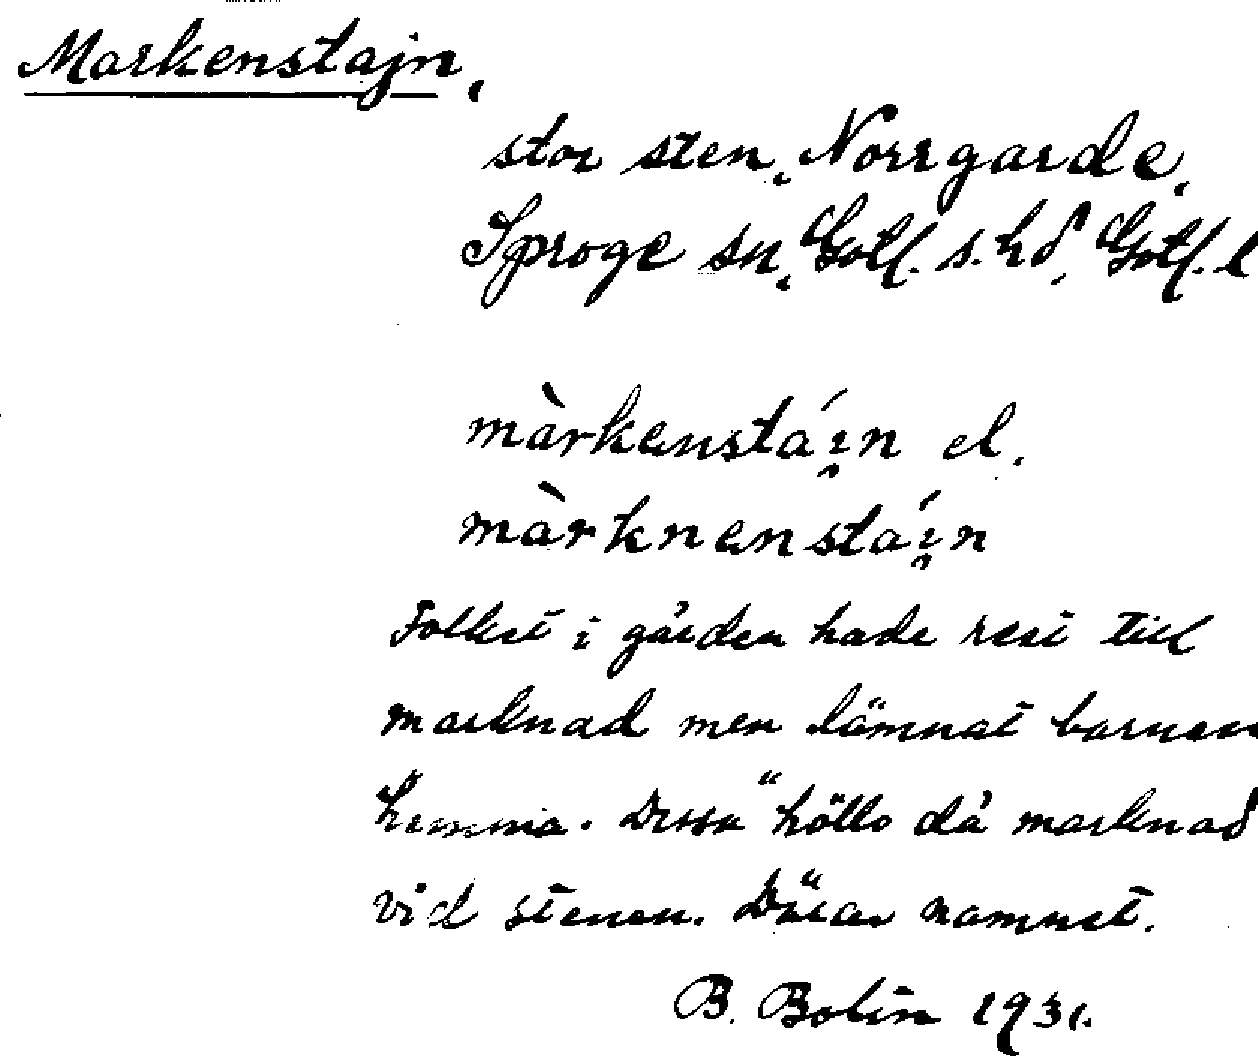 Markenstajn,
stor sten, Norrgarde,
Sproge sn, Gotl. s. hd, Gotl. l
màrkenstáin el.
màrknenstáin
Folket i gården hade rest till
marknad men lämnat barnen
hemma. Dessa "höllo då marknad
vid stenen." Därav namnet.
B. Bolin 1931.